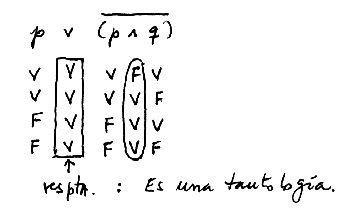 p v (p ∧ q)
V V V F V
V V V V F
F V F V V
F V F V F
respta. : Es una tautología.